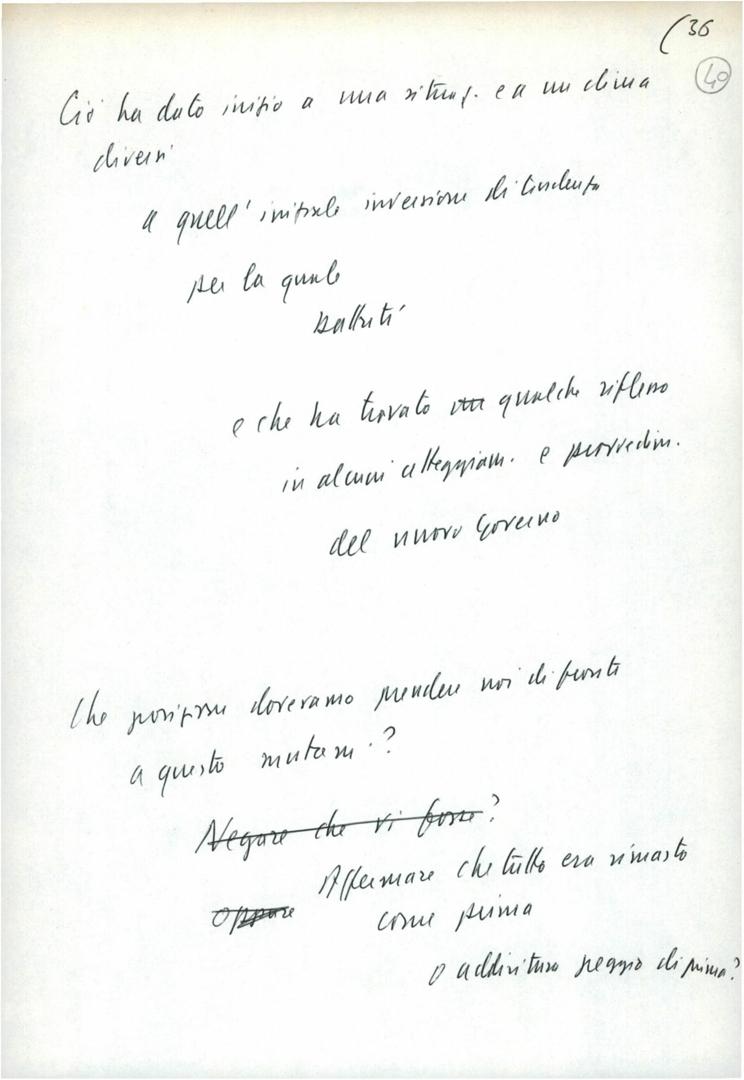 (36
40
Ciò ha dato inizio a una situaz. e a un clima
diversi
a quell'iniziale inversione di tendenza
per la quale
battuti
e che ha trovato un qualche riflesso
in alcuni atteggiam. e provvedim.
del nuovo Governo
Che posizione dovevamo prendere noi di fronte
a questo mutam.?
Negare che vi fosse?
Affermare che tutto era rimasto
Oppure come prima
o addirittura peggio di prima?